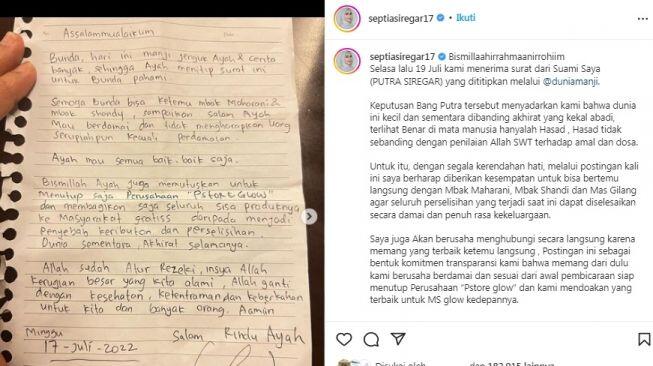 Assalammualaikum
Bunda, hari ini manji jenguk Ayah & cerita
banyak, sehingga Ayah menitip surat ini
untuk Bunda pahami.
Semoga Bunda bisa ketemu mbak Maharani &
mbak shandy, sampaikan salam Ayah
Mau berdamai dan tidak mengharapkan uang
serupiahpun kecuali perdamaian.
Ayah mau semua baik-baik saja.
Bismillah Ayah juga memutuskan untuk
Menutup saja Perusahaan "PStore GLOW"
dan membagikan saja seluruh sisa produknya
ke Masyarakat gratiss daripada menjadi
Penyebab keributan dan perselisihan.
Dunia sementara, Akhirat selamanya.
Allah sudah Atur Rezeki, insya Allah
kerugian besar yang kita alami, Allah ganti
dengan kesehatan, ketentraman dan keberkahan
untuk kita dan banyak orang. Aamiin
Minggu
17-Juli-2022
Salam Rindu Ayah
septiasiregar17 • Ikuti
septiasiregar17 Bismillaahirrahmaanirrohiim
Selasa lalu 19 Juli kami menerima surat dari Suami Saya
(PUTRA SIREGAR) yang dititipkan melalui @duniamanji.
Keputusan Bang Putra tersebut menyadarkan kami bahwa dunia
ini kecil dan sementara dibanding akhirat yang kekal abadi,
terlihat Benar di mata manusia hanyalah Hasad , Hasad tidak
sebanding dengan penilaian Allah SWT terhadap amal dan dosa.
Untuk itu, dengan segala kerendahan hati, melalui postingan kali
ini saya berharap diberikan kesempatan untuk bisa bertemu
langsung dengan Mbak Maharani, Mbak Shandi dan Mas Gilang
agar seluruh perselisihan yang terjadi saat ini dapat diselesaikan
secara damai dan penuh rasa kekeluargaan.
Saya juga Akan berusaha menghubungi secara langsung karena
memang yang terbaik ketemu langsung , Postingan ini sebagai
bentuk komitmen transparansi kami bahwa memang dari dulu
kami berusaha berdamai dan sesuai dari awal pembicaraan siap
menutup Perusahaan "Pstore glow" dan kami mendoakan yang
terbaik untuk MS glow kedepannya.
Disukai oleh dan 182.015 lainnya